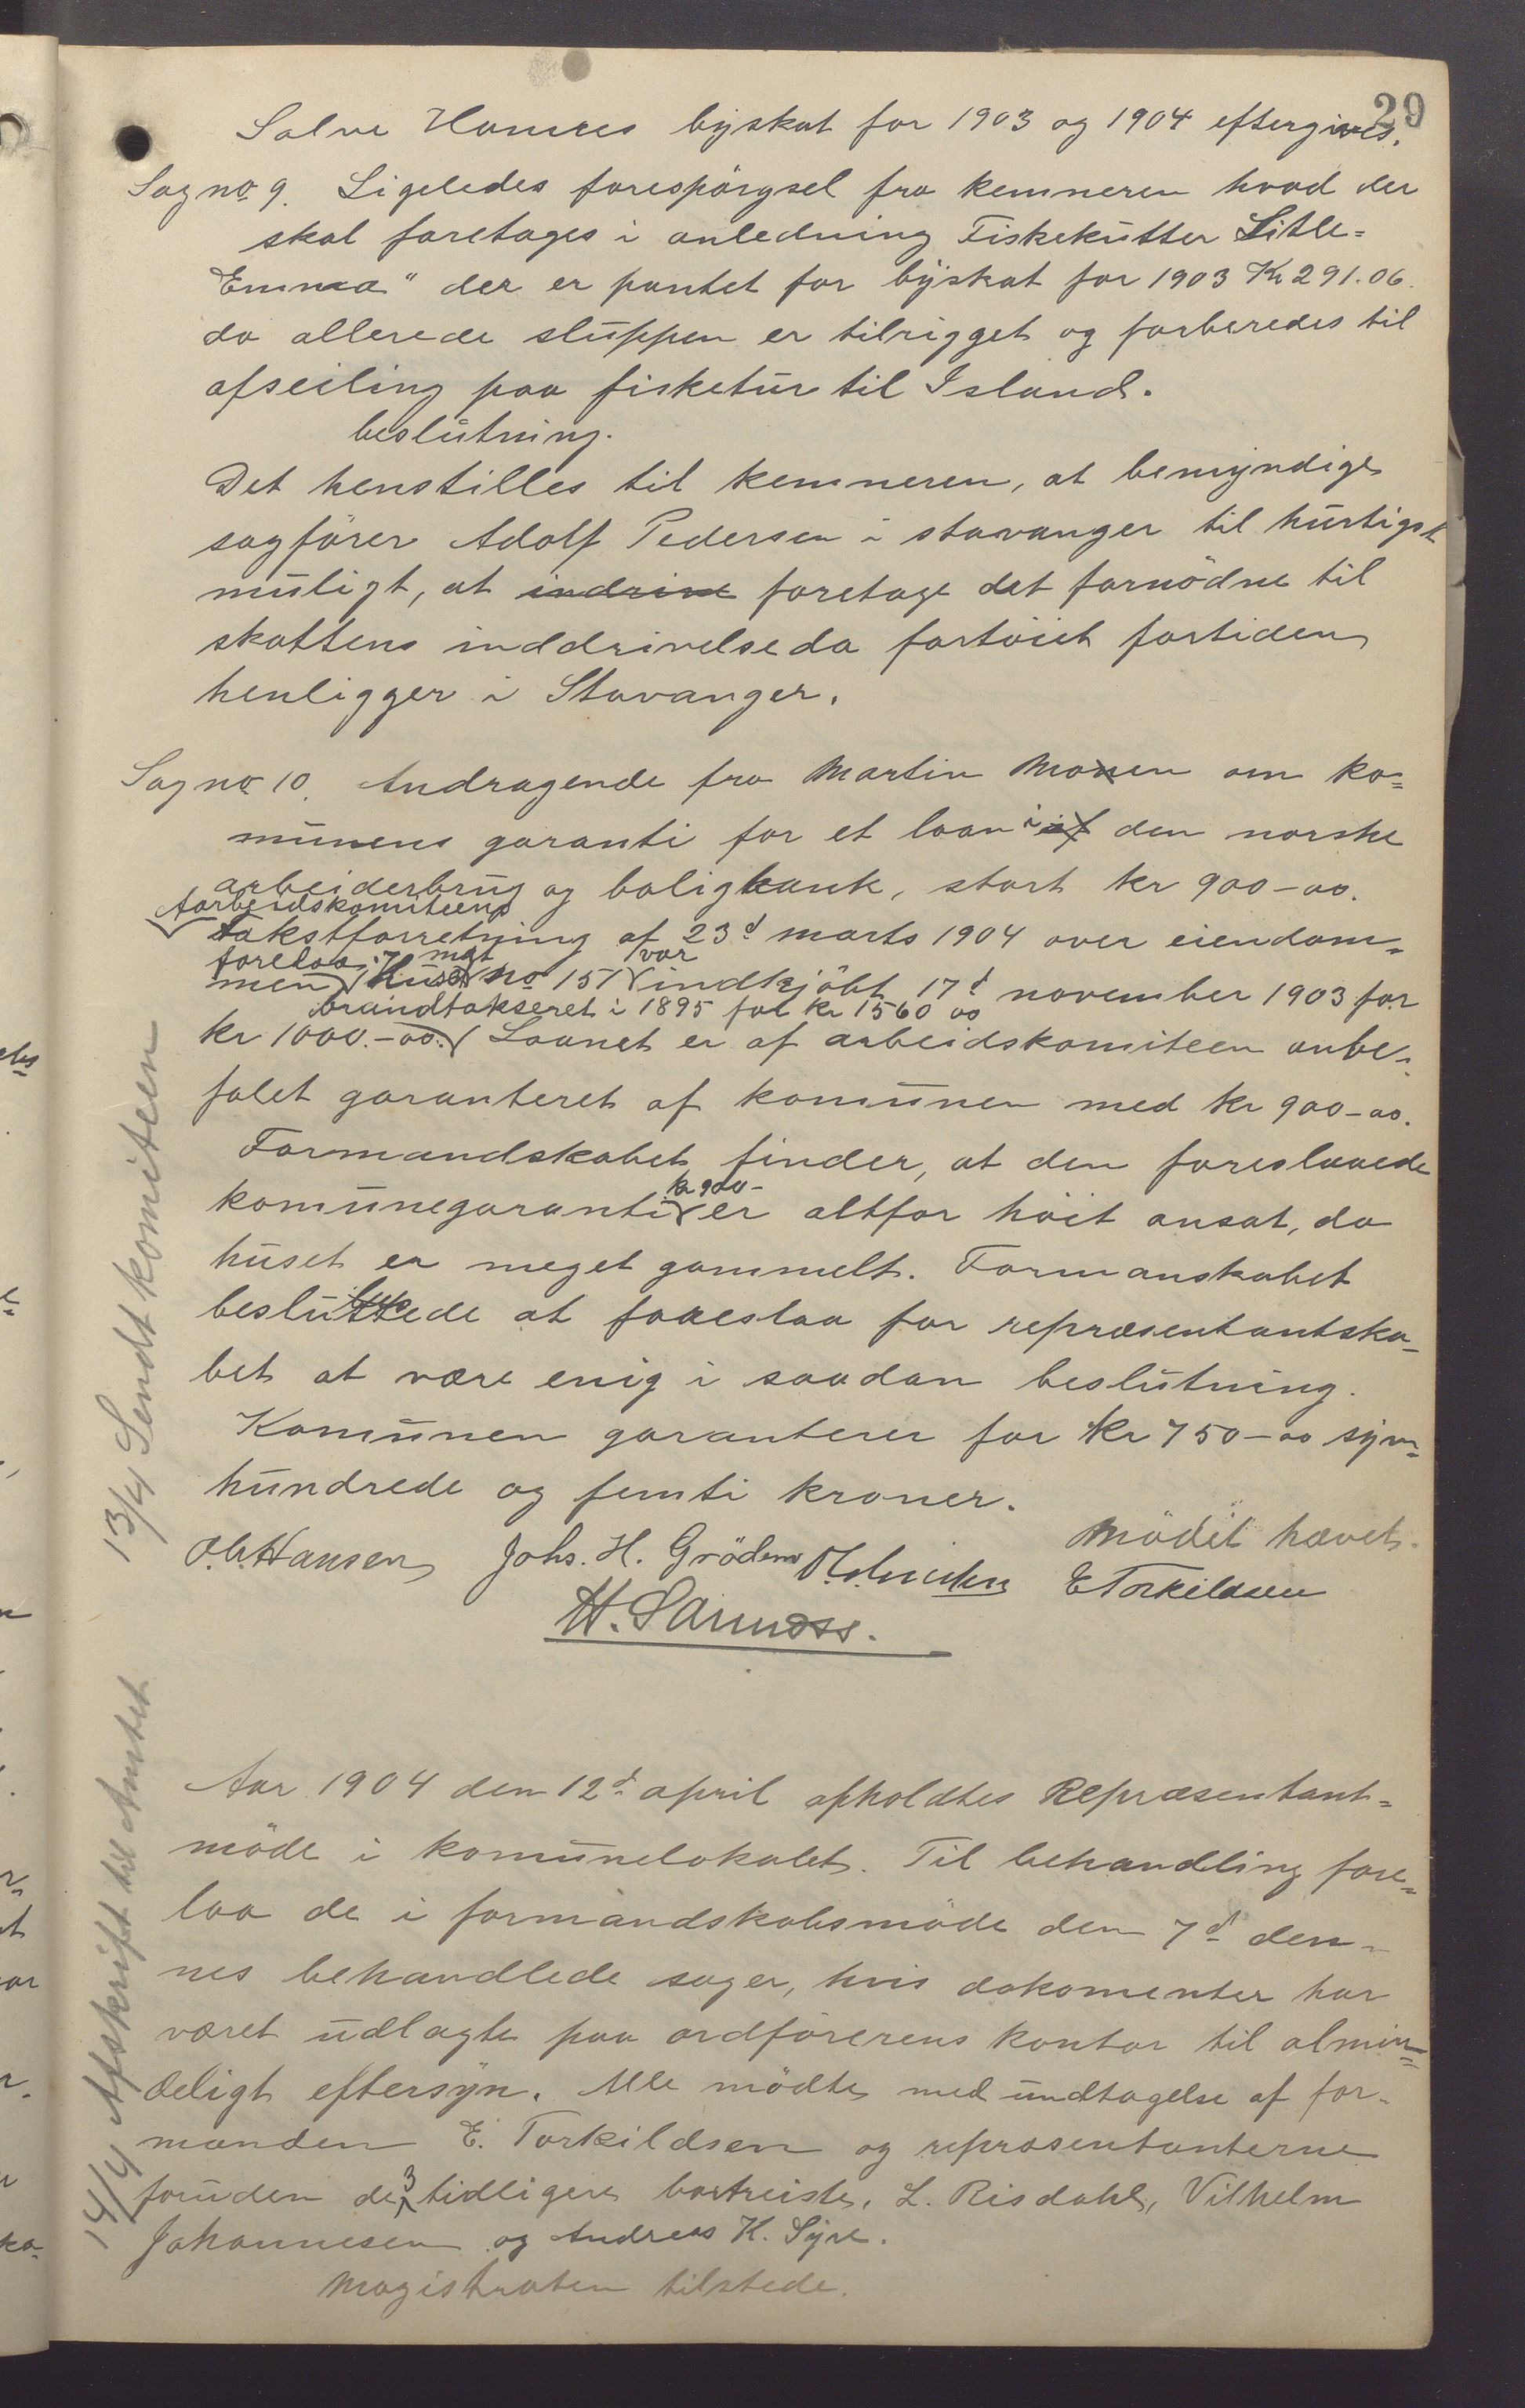 29
Salve Hamres byskat for 1903 og 1904 eftergives.
Sag no. 9. Ligeledes forespörgsel fra kemneren hvad der
skal foretages i anledning Fiskekutter Litle=
Emma" der er pantet for byskat for 1903 Kr 291.06.
da allerede sluppen er tilrigget og forberedes til
afseiling paa fisketur til Island.
beslutning.
Det henstilles til kemneren, at bemyndige
sagförer Adolf Pedersen i stavanger til hurtigst
muligt, at indrive foretage det fornödne til
skattens inddrivelse da fartöiet fortiden
henligger i Stavanger.
Sag no 10. Andragende fra Martin Monen om ko=
munens garanti for et laan i af den norske
arbeiderbrug og boligbank, stort kr 900-00.
Aarbeidskomiteens
Takstforretning af 23d marts 1904 over eiendom=
forelaa mat var
men Huset no 157 indkjöbt 17d november 1903 for
brandtakseret i 1895 for kr 1560 00
kr 1000.-00. Laanet er af arbeidskomiteen anbe=
falet garanteret af komunen med kr 900-00.
Formandskabet finder, at den foreslaaede
kr 900-
komunegaranti er altfor höit ansat, da
huset er meget gammelt. Formanskabet
besluttede at foreslaa for repræsentantska=
bet at være enig i saadan beslutning.
Komunen garanterer for kr 750-00 syv=
hundrede og femti kroner.
Mödet hævet.
O.G. Hansen Johs. H. Grödem E Torkildsen
13/4 Sendt komiteen
Aar 1904 den 12d april afholdtes Repræsentant=
möde i komunelokalet. Til behandling fore=
laa de i formandskabsmöde den 7d den=
nes behandlede sager, hvis dokomenter har
været udlagte paa ordförerens kontor til almin=
deligt eftersyn. Alle mödte med undtagelse af for=
manden E. Torkildsen og repræsentanterne
foruden de 3 tidligere bortreiste, L. Risdahl, Vilhelm
Johannesen og Andreas K. Syre.
Magistraten tilstede.
14/4 Afskrift til Amtet